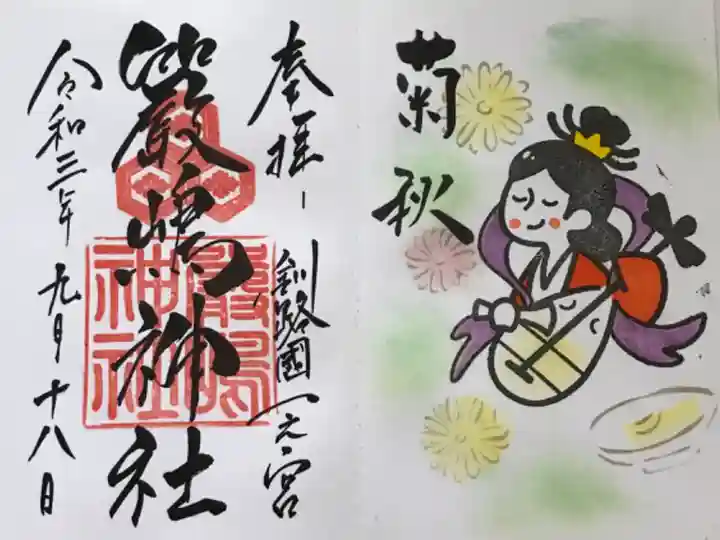 菊秋
奉拝
釧路國一之宮
嚴嶋神社
嚴嶋神社
令和三年九月十八日